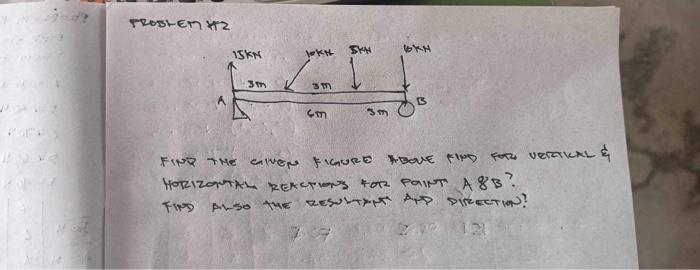 PROBLEM #2
15KN 10KN 5KN 10KN
3m 3m
A B
6m 3m
FIND THE GIVEN FIGURE ABOVE FIND FOR VERTICAL &
HORIZONTAL REACTIONS FOR POINT A & B?
FIND ALSO THE RESULTANT AND DIRECTION?